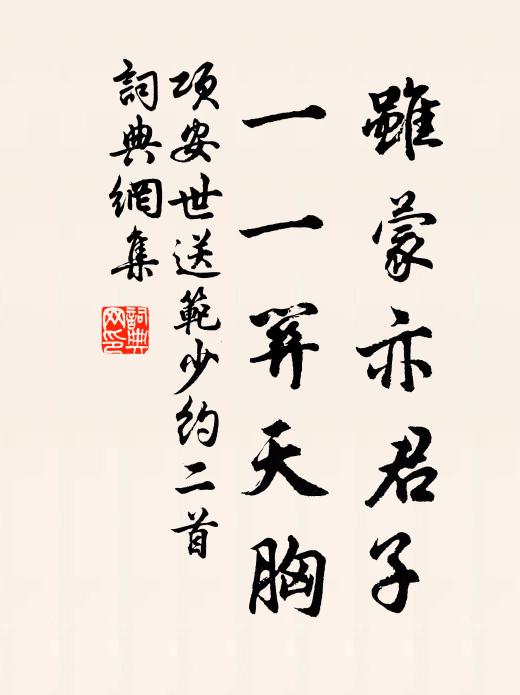 雖蒙亦君子
一一羿天胸
項安世送範少約二首
詞典網集
詞典网印